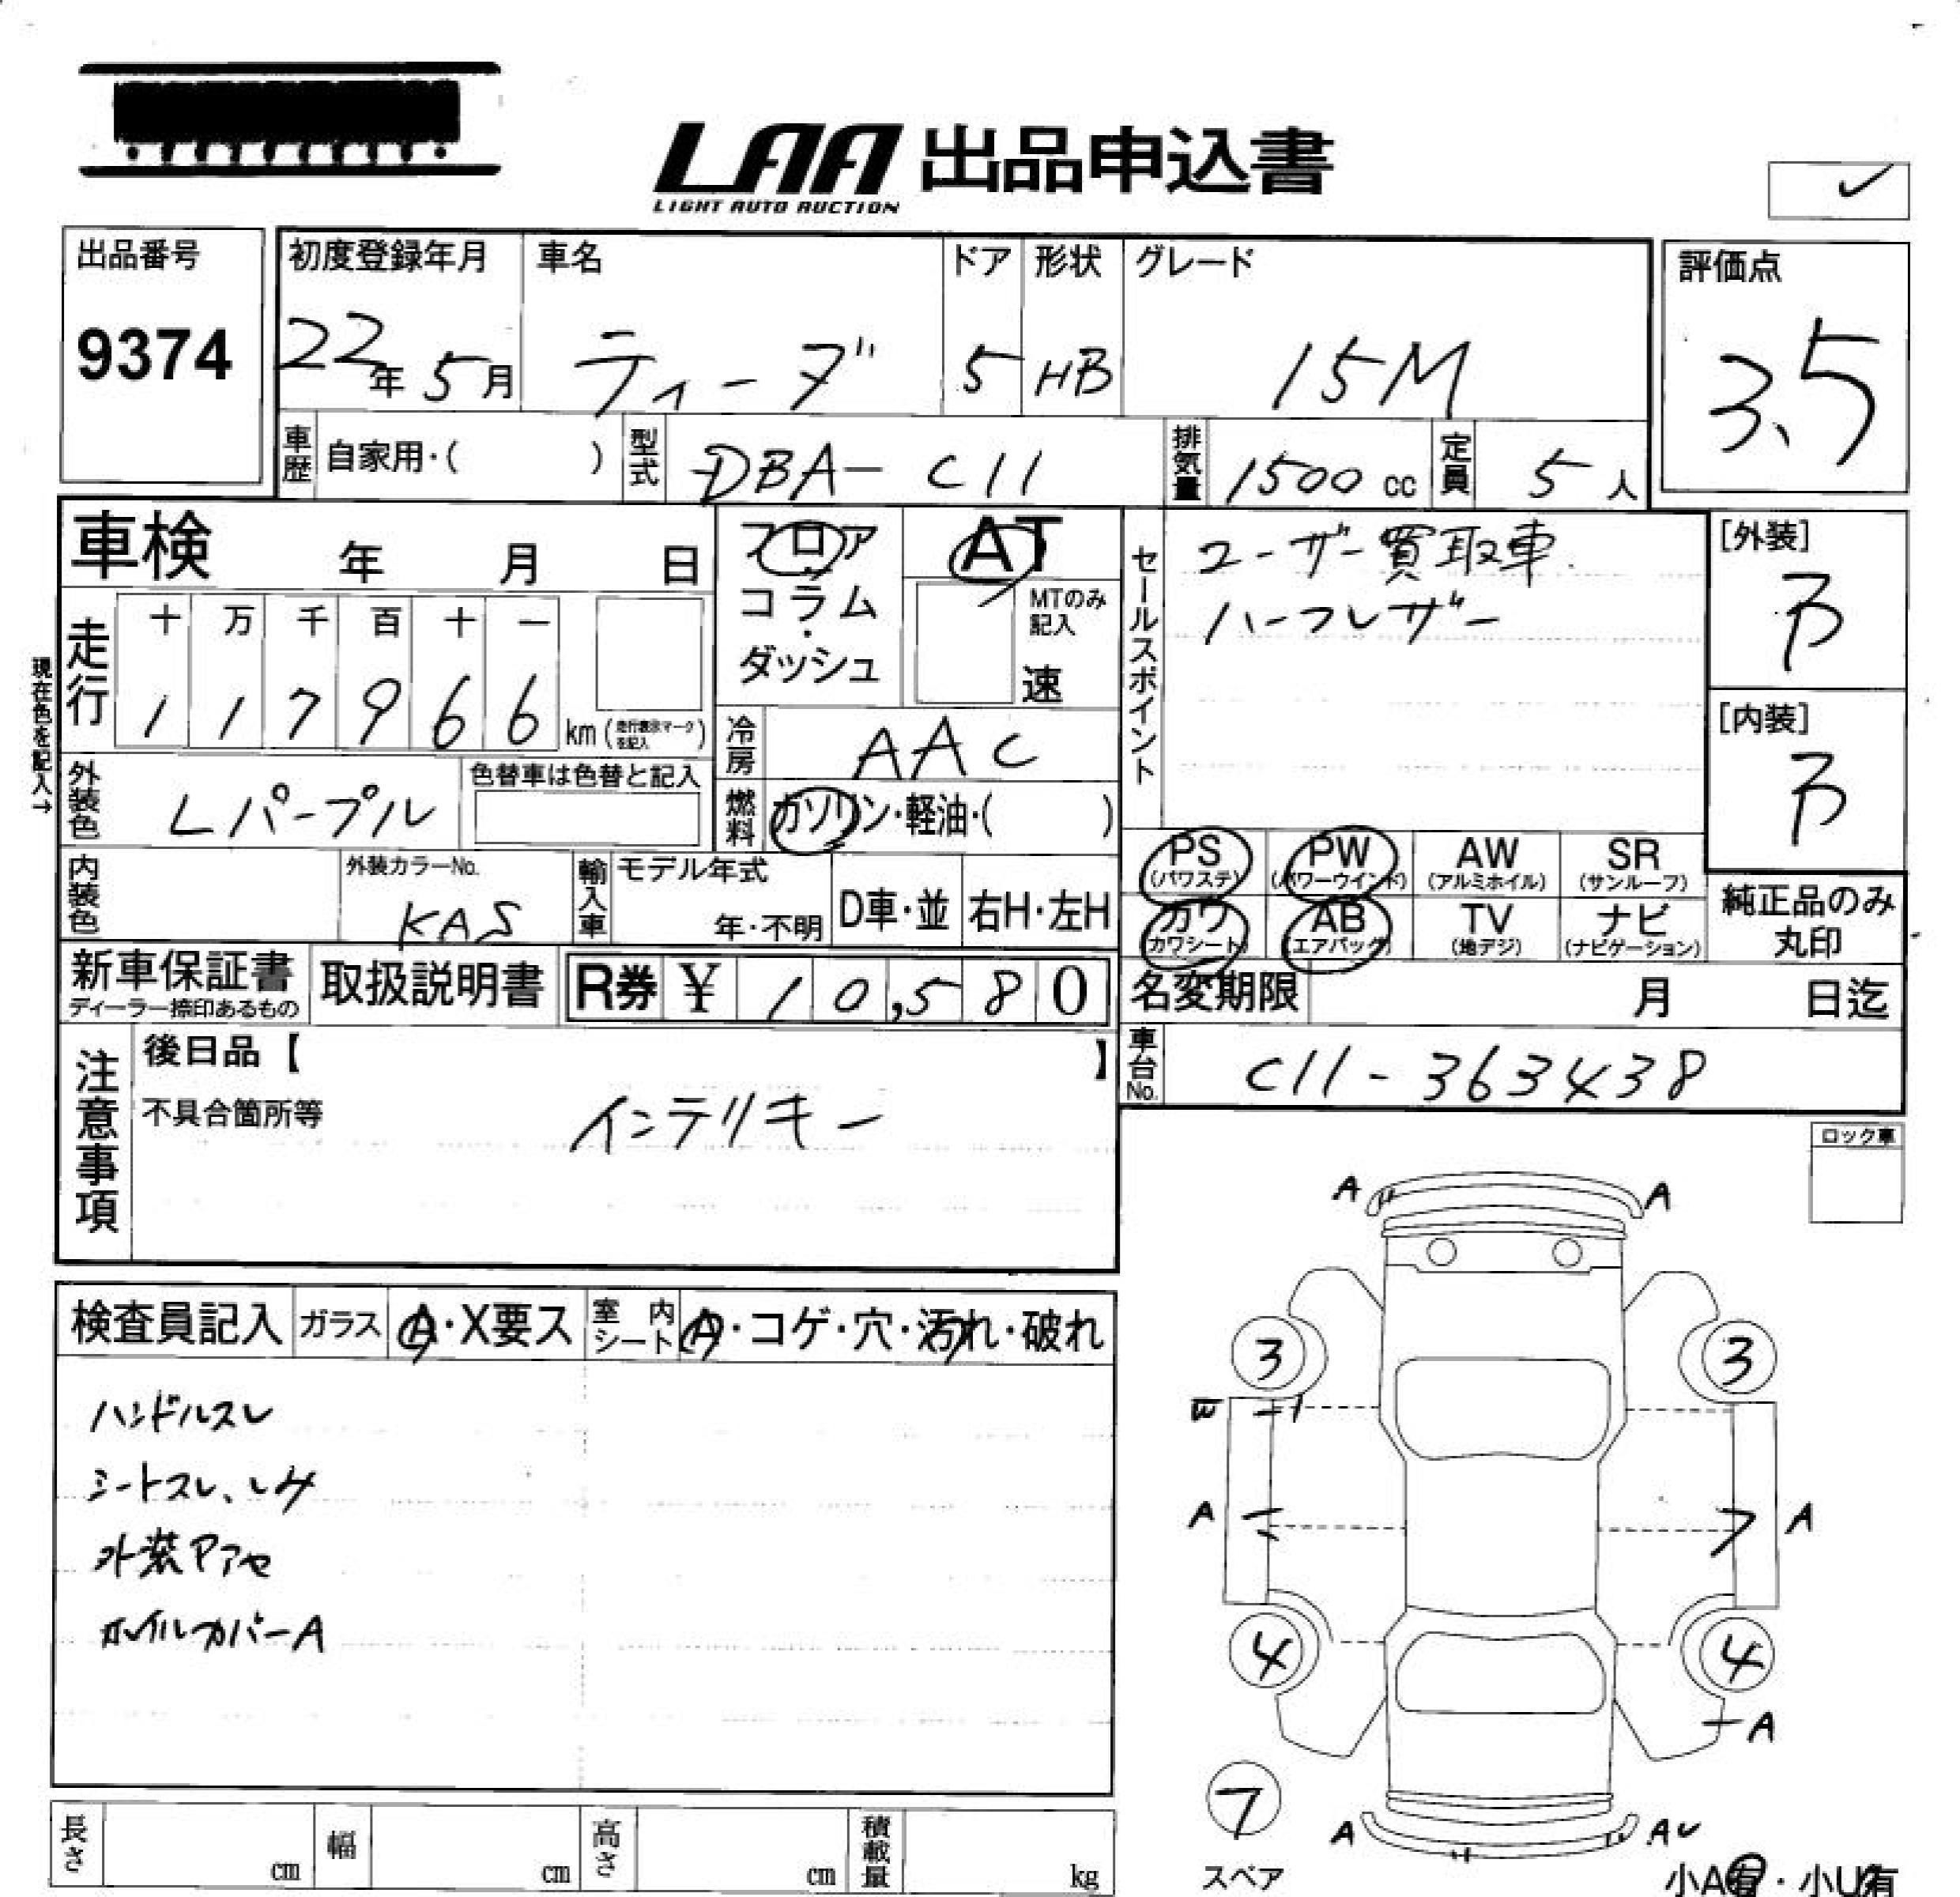 LAA 出品申込書
LIGHT AUTO AUCTION
出品番号
9374
初度登録年月
22年 5月
車名
ティーダ
ドア
5
形状
HB
グレード
15M
評価点
3.5
車歴 自家用・( )
型式 DBA-C11
排気量 1500 cc
定員 5 人
車検 年 月 日
フロア・コラム・ダッシュ
AT
MTのみ記入
速
セールスポイント
ユーザー買取車
ハーフレザー
[外装]
[内装]
現在色を記入→
走行
十 万 千 百 十 一
1 1 7 9 6 6 km (走行表示マークを記入)
冷房 AAC
外装色 Lパープル
色替車は色替と記入
燃料 ガソリン・軽油・( )
内装色
外装カラーNo.
KAS
輸入車
モデル年式
年・不明
D車・並
右H・左H
PS (パワステ)
PW (パワーウインド)
AW (アルミホイル)
SR (サンルーフ)
カワ (カワシート)
AB (エアバッグ)
TV (地デジ)
ナビ (ナビゲーション)
純正品のみ
丸印
新車保証書
ディーラー捺印あるもの
取扱説明書
R券 ¥ 10,580
名変期限 月 日迄
車台No. C11-363438
注意事項
後日品【 】
不具合箇所等
インテリキー
ロック車
検査員記入
ガラス A・X要ス
室内シート A・コゲ・穴・汚れ・破れ
ハンドルスレ
シートスレ、シミ
外装アセ
ホイルカバーA
A A
3 3
A A
4 4
A
7
スペア
A A
小A有・小U有
長さ cm
幅 cm
高さ cm
積載量 kg